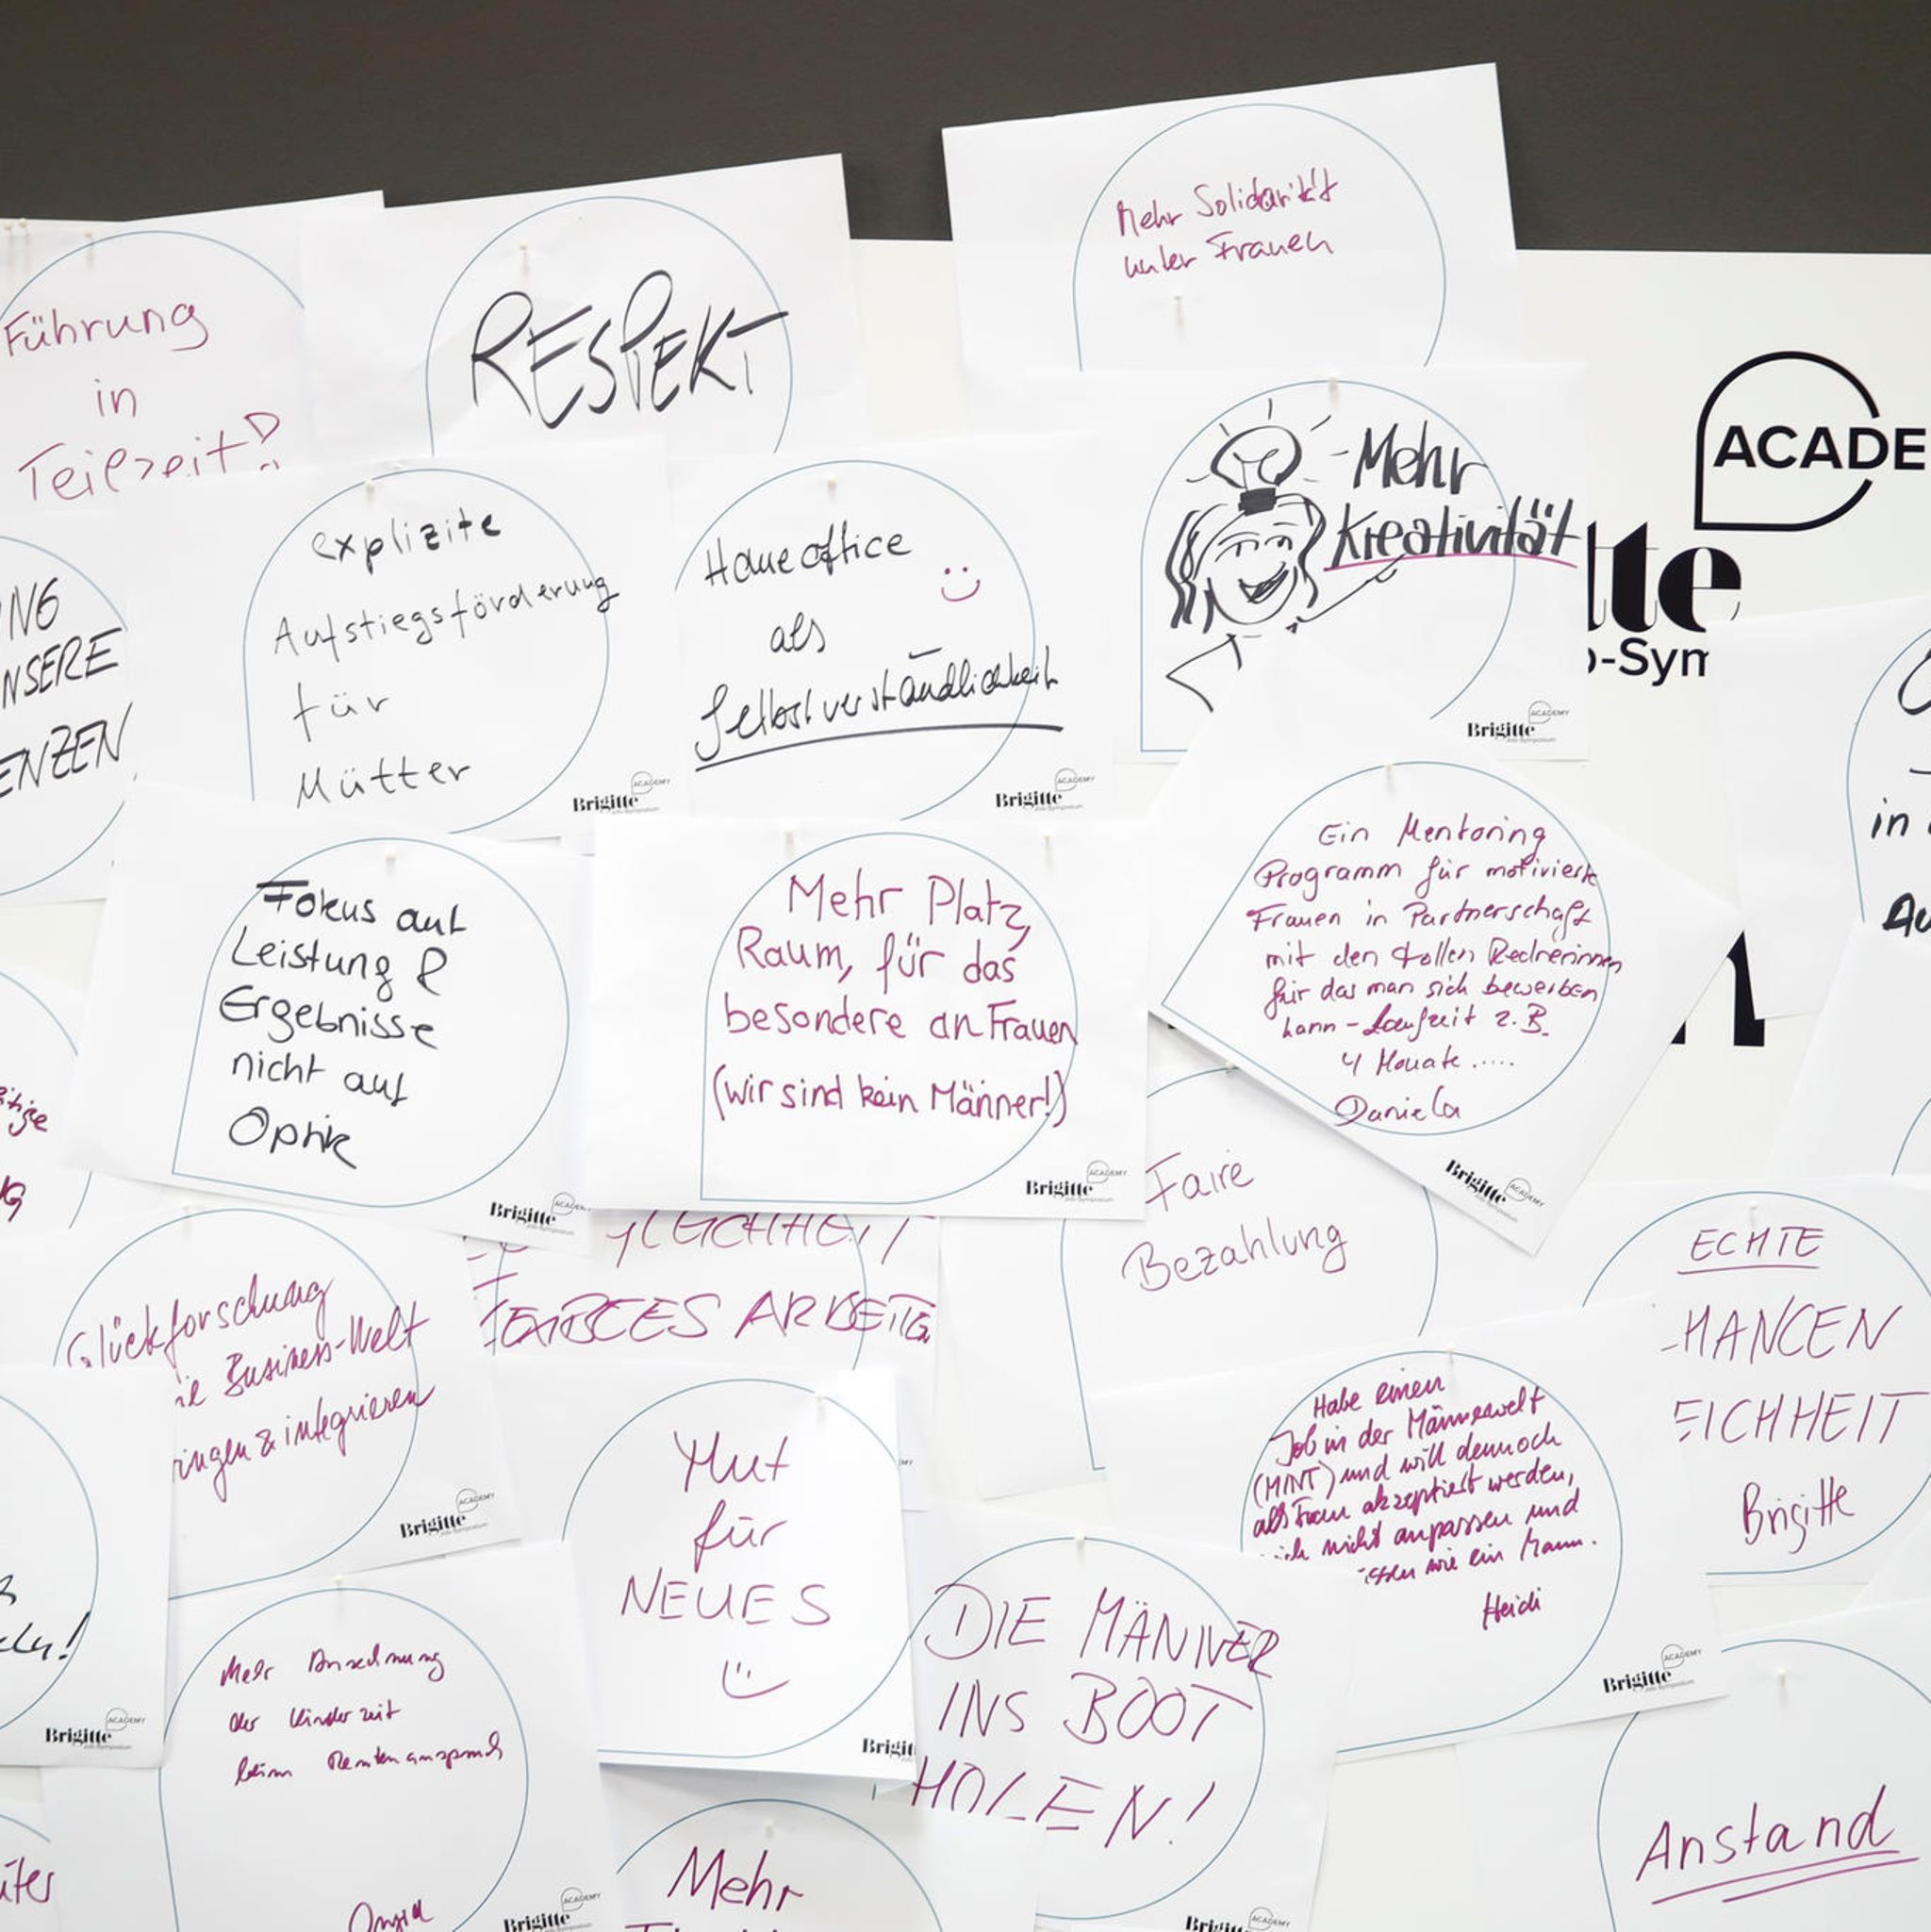 Mehr Solidarität
unter Frauen
Führung
in
Teilzeit!
RESPEKT
ACADE
tte
-Sym
- Mehr
Kreativität
Brigitte ACADEMY
Job-Symposium
explizite
Aufstiegsförderung
für
Mütter
Brigitte ACADEMY
Job-Symposium
Homeoffice
als
Selbstverständlichkeit
Brigitte ACADEMY
Job-Symposium
NG
NSERE
ENZEN
in
Au
Fokus auf
Leistung &
Ergebnisse
nicht auf
Optik
Brigitte ACADEMY
Mehr Platz,
Raum, für das
besondere an Frauen
(wir sind kein Männer!)
Brigitte ACADEMY
Job-Symposium
Ein Mentoring
Programm für motivierte
Frauen in Partnerschaft
mit den tollen Rednerinnen
für das man sich bewerben
kann - Laufzeit z.B.
4 Monate .....
Daniela
Brigitte ACADEMY
Job-Symposium
Faire
Bezahlung
Glückforschung
ie Business-Welt
ringen & integrieren
Brigitte ACADEMY
Job-Symposium
GLEICHHEIT
ARBEITE
ECHTE
HANCEN
EICHHEIT
Brigitte
Habe einen
Job in der Männerwelt
(MINT) und will dennoch
als Frau akzeptiert werden,
ich nicht anpassen und
wie ein Mann.
Heidi
Brigitte ACADEMY
Job-Symposium
Mut
für
NEUES
Brigit
DIE MÄNNER
INS BOOT
HOLEN!
Brigitte ACADEMY
Brigitte ACADEMY
Job-Symposium
Mehr Anrechnung
der Kinderzeit
beim Rentenanspruch
Brigitte ACADEMY
Mehr
Anstand